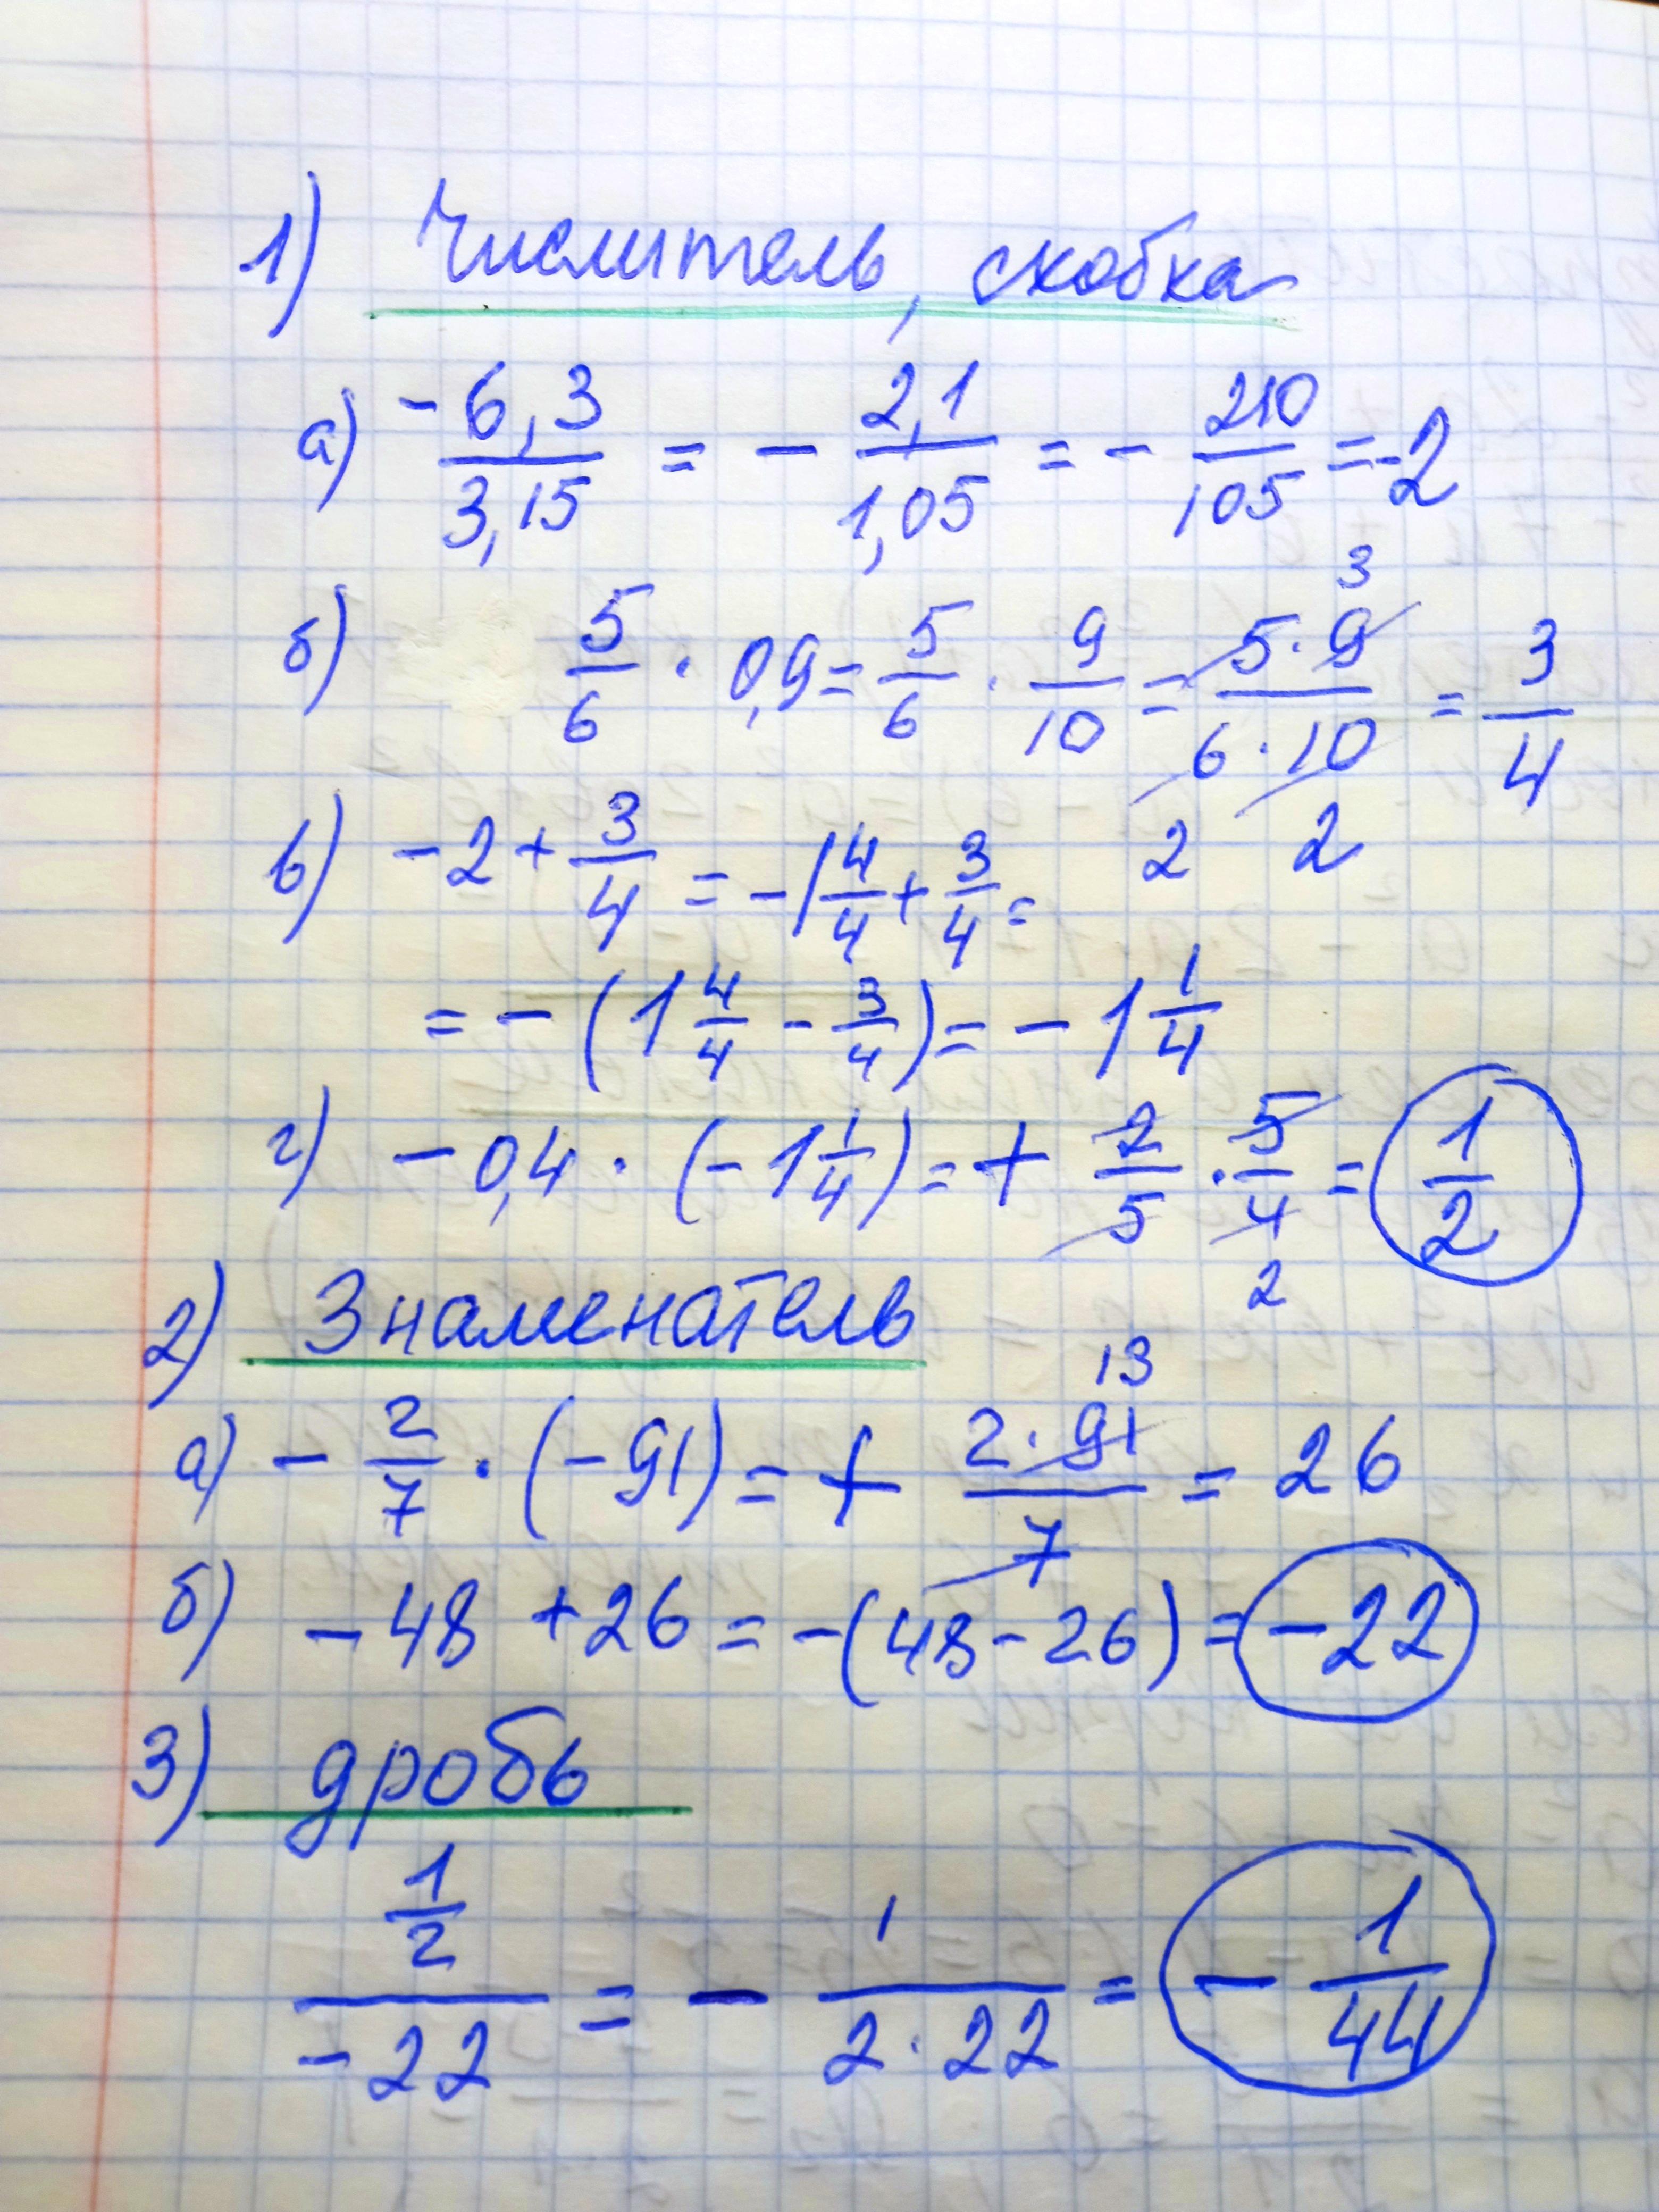 1) Числитель, скобка
а) -6,3/3,15 = - 2,1/1,05 = - 210/105 = -2
б) 5/6 · 0,9 = 5/6 · 9/10 = 5·9/6·10 = 3/4
3
2 2
в) -2 + 3/4 = -1 4/4 + 3/4 =
= - (1 4/4 - 3/4) = - 1 1/4
г) - 0,4 · (-1 1/4) = + 2/5 · 5/4 = 1/2
2
2) Знаменатель
13
а) - 2/7 · (-91) = + 2·91/7 = 26
б) -48 + 26 = -(48-26) = -22
3) дробь
1/2/-22 = - 1/2·22 = - 1/44